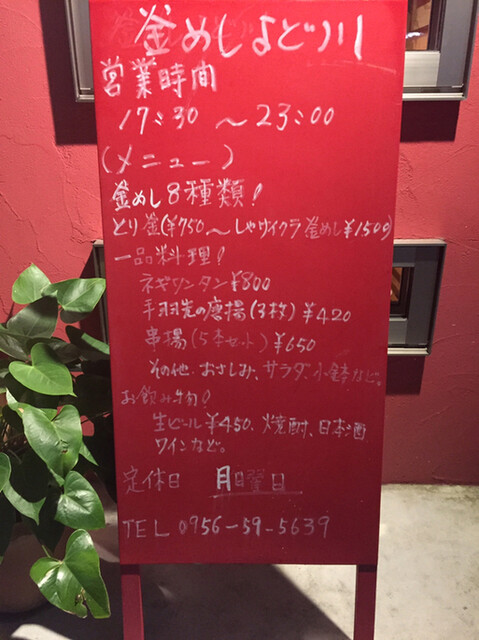 釜めしよどり川
営業時間
17:30 〜23:00
(メニュー)
釜めし8種類!
とり釜(¥750〜しゃけイクラ釜めし¥1500)
一品料理!
ネギリンタン¥800
手羽先の唐揚(3枚)¥420
串揚(5本セット)¥650
その他、おさしみ、サラダ、小鉢など。
お飲み物!
生ビール¥450、焼酎、日本酒
ワインなど。
定休日 月曜日
TEL 0956-59-5639